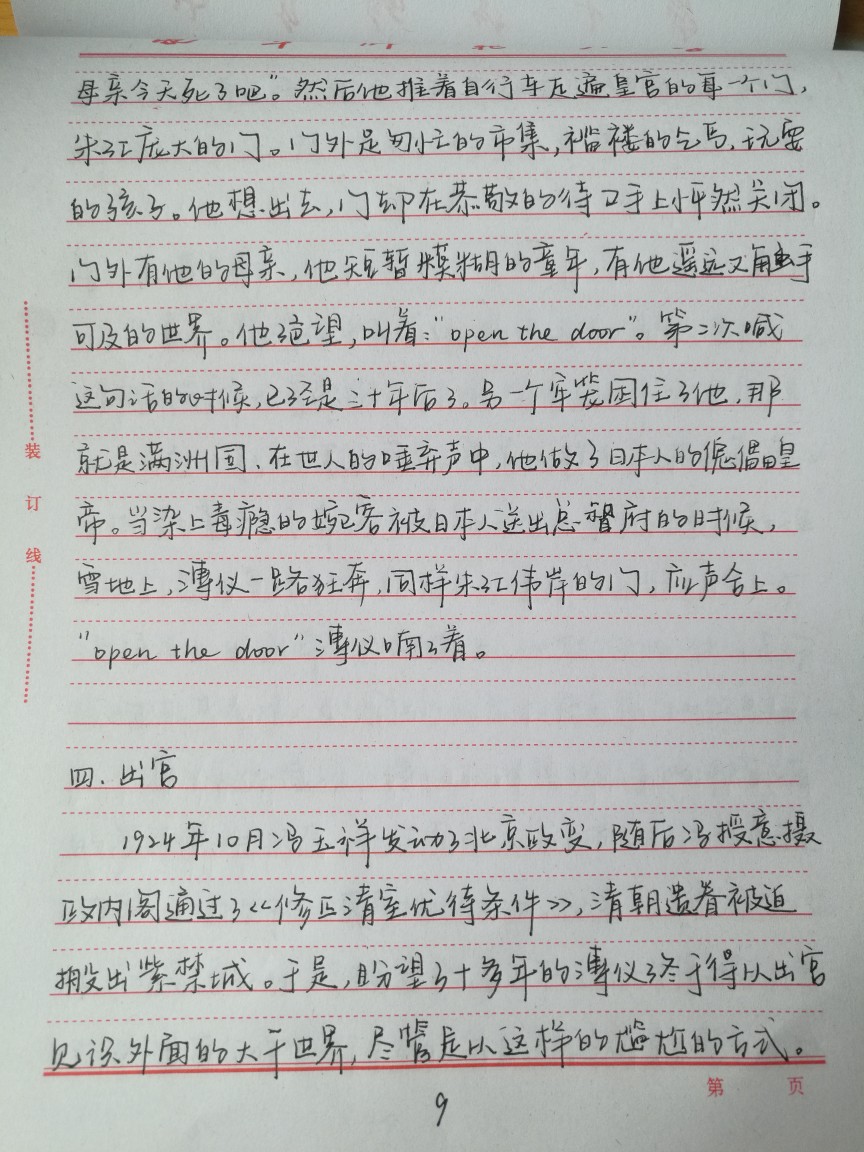 母亲今天死了吧”。然后他推着自行车走遍皇宫的每一个门，
朱红庞大的门。门外是匆忙的市集，褴褛的乞丐，玩耍
的孩子。他想出去，门却在恭敬的侍卫手上怦然关闭。
门外有他的母亲，他短暂模糊的童年，有他遥远又触手
可及的世界。他绝望，叫着：“open the door”。第二次喊
这句话的时候，已经是三十年后了。另一个牢笼困住了他，那
就是满洲国、在世人的唾弃声中，他做了日本人的傀儡皇
帝。当染上毒瘾的婉容被日本人送出总督府的时候，
雪地上，溥仪一路狂奔，同样朱红伟岸的门，应声合上。
“open the door”溥仪喃喃着。
四．出宫
1924年10月冯玉祥发动了北京政变，随后冯授意摄
政内阁通过了《修正清室优待条件》，清朝遗眷被迫
搬出紫禁城。于是，盼望了十多年的溥仪终于得以出宫
见识外面的大千世界，尽管是以这样的尴尬的方式。
装
订
线
第 页
9